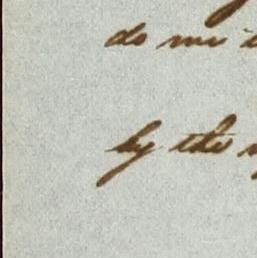 do mi
by the